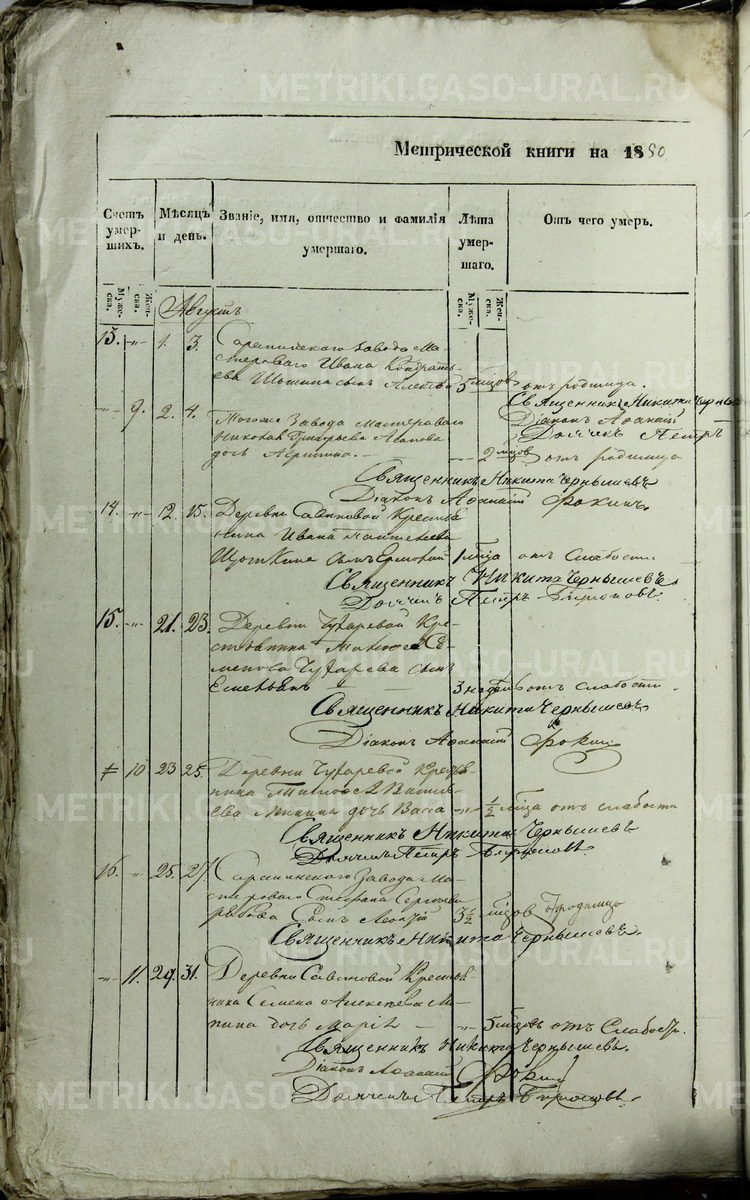 METRIKI.GASO-URAL.RU
Метрической книги на 1850
Счетъ умерших.
Мѣсяцъ и день.
Званіе, имя, отчество и фамилія умершаго.
Лѣта умершаго.
Отъ чего умеръ.
Мужеска.
Женска.
Мужеска.
Женска.
Августъ
13. „ 1. 3. Саранинскаго завода Ма-
стероваго Ивана Кондрать-
ева сынъ 5 мѣсцов отъ родимца.
Священникъ Никита Черны
Діаконъ Афанасій
Дьячекъ Петръ
„ 9. 2. 4. Тогоже Завода Мастероваго
Николая Григорьева
дочь Агрипина 2 мѣсцов отъ родимца
Священникъ Никита Чернышевъ
Діаконъ Афанасій Фокинъ
14. „ 12. 15. Деревни Савиновой Крестья-
нина Ивана
сынъ 1 мѣсца отъ Слабости
Священникъ Никита Чернышевъ
Дьячекъ Петръ Бирюковъ
15. „ 21. 23. Деревни Чухаревой Кре-
стьянина Се-
менова Чухарева сынъ
3 недѣль отъ слабости.
Священникъ Никита Чернышевъ
Діаконъ Афанасій Фокинъ
10 23 25. Деревни Чухаревой Кресть-
нина Василь-
ева дочь Васса „ ½ мѣсца отъ слабости
Священникъ Никита Чернышевъ
Дьячекъ Петръ Бирюковъ
16. „ 25. 27. Саранинскаго Завода Ма-
стероваго Стефана Сергѣева
сынъ 3½ мѣсцов отъ родимца
Священникъ Никита Чернышевъ
„ 11. 29. 31. Деревни Савиновой Крестья-
нина Семена Алексѣева
дочь Марія „ 5 мѣсцовъ отъ Слабости.
Священникъ Никита Чернышевъ.
Діаконъ Афанасій Фокинъ
Дьячекъ Петръ Бирюковъ.